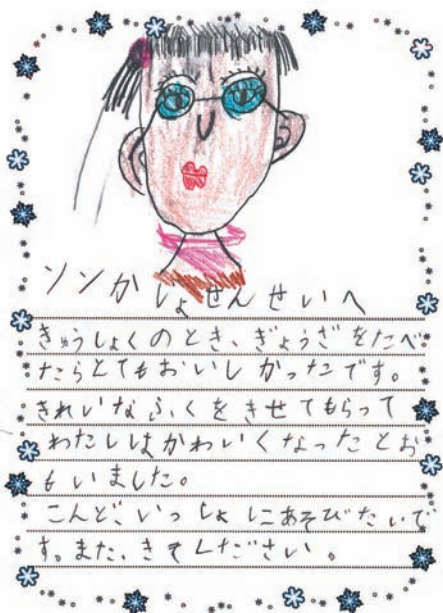 ソンかしょせんせいへ
きゅうしょくのとき、ぎょうざをたべ
たらとてもおいしかったです。
きれいなふくをきせてもらって
わたしはかわいくなったとお
もいました。
こんど、いっしょにあそびたいで
す。また、きてください。